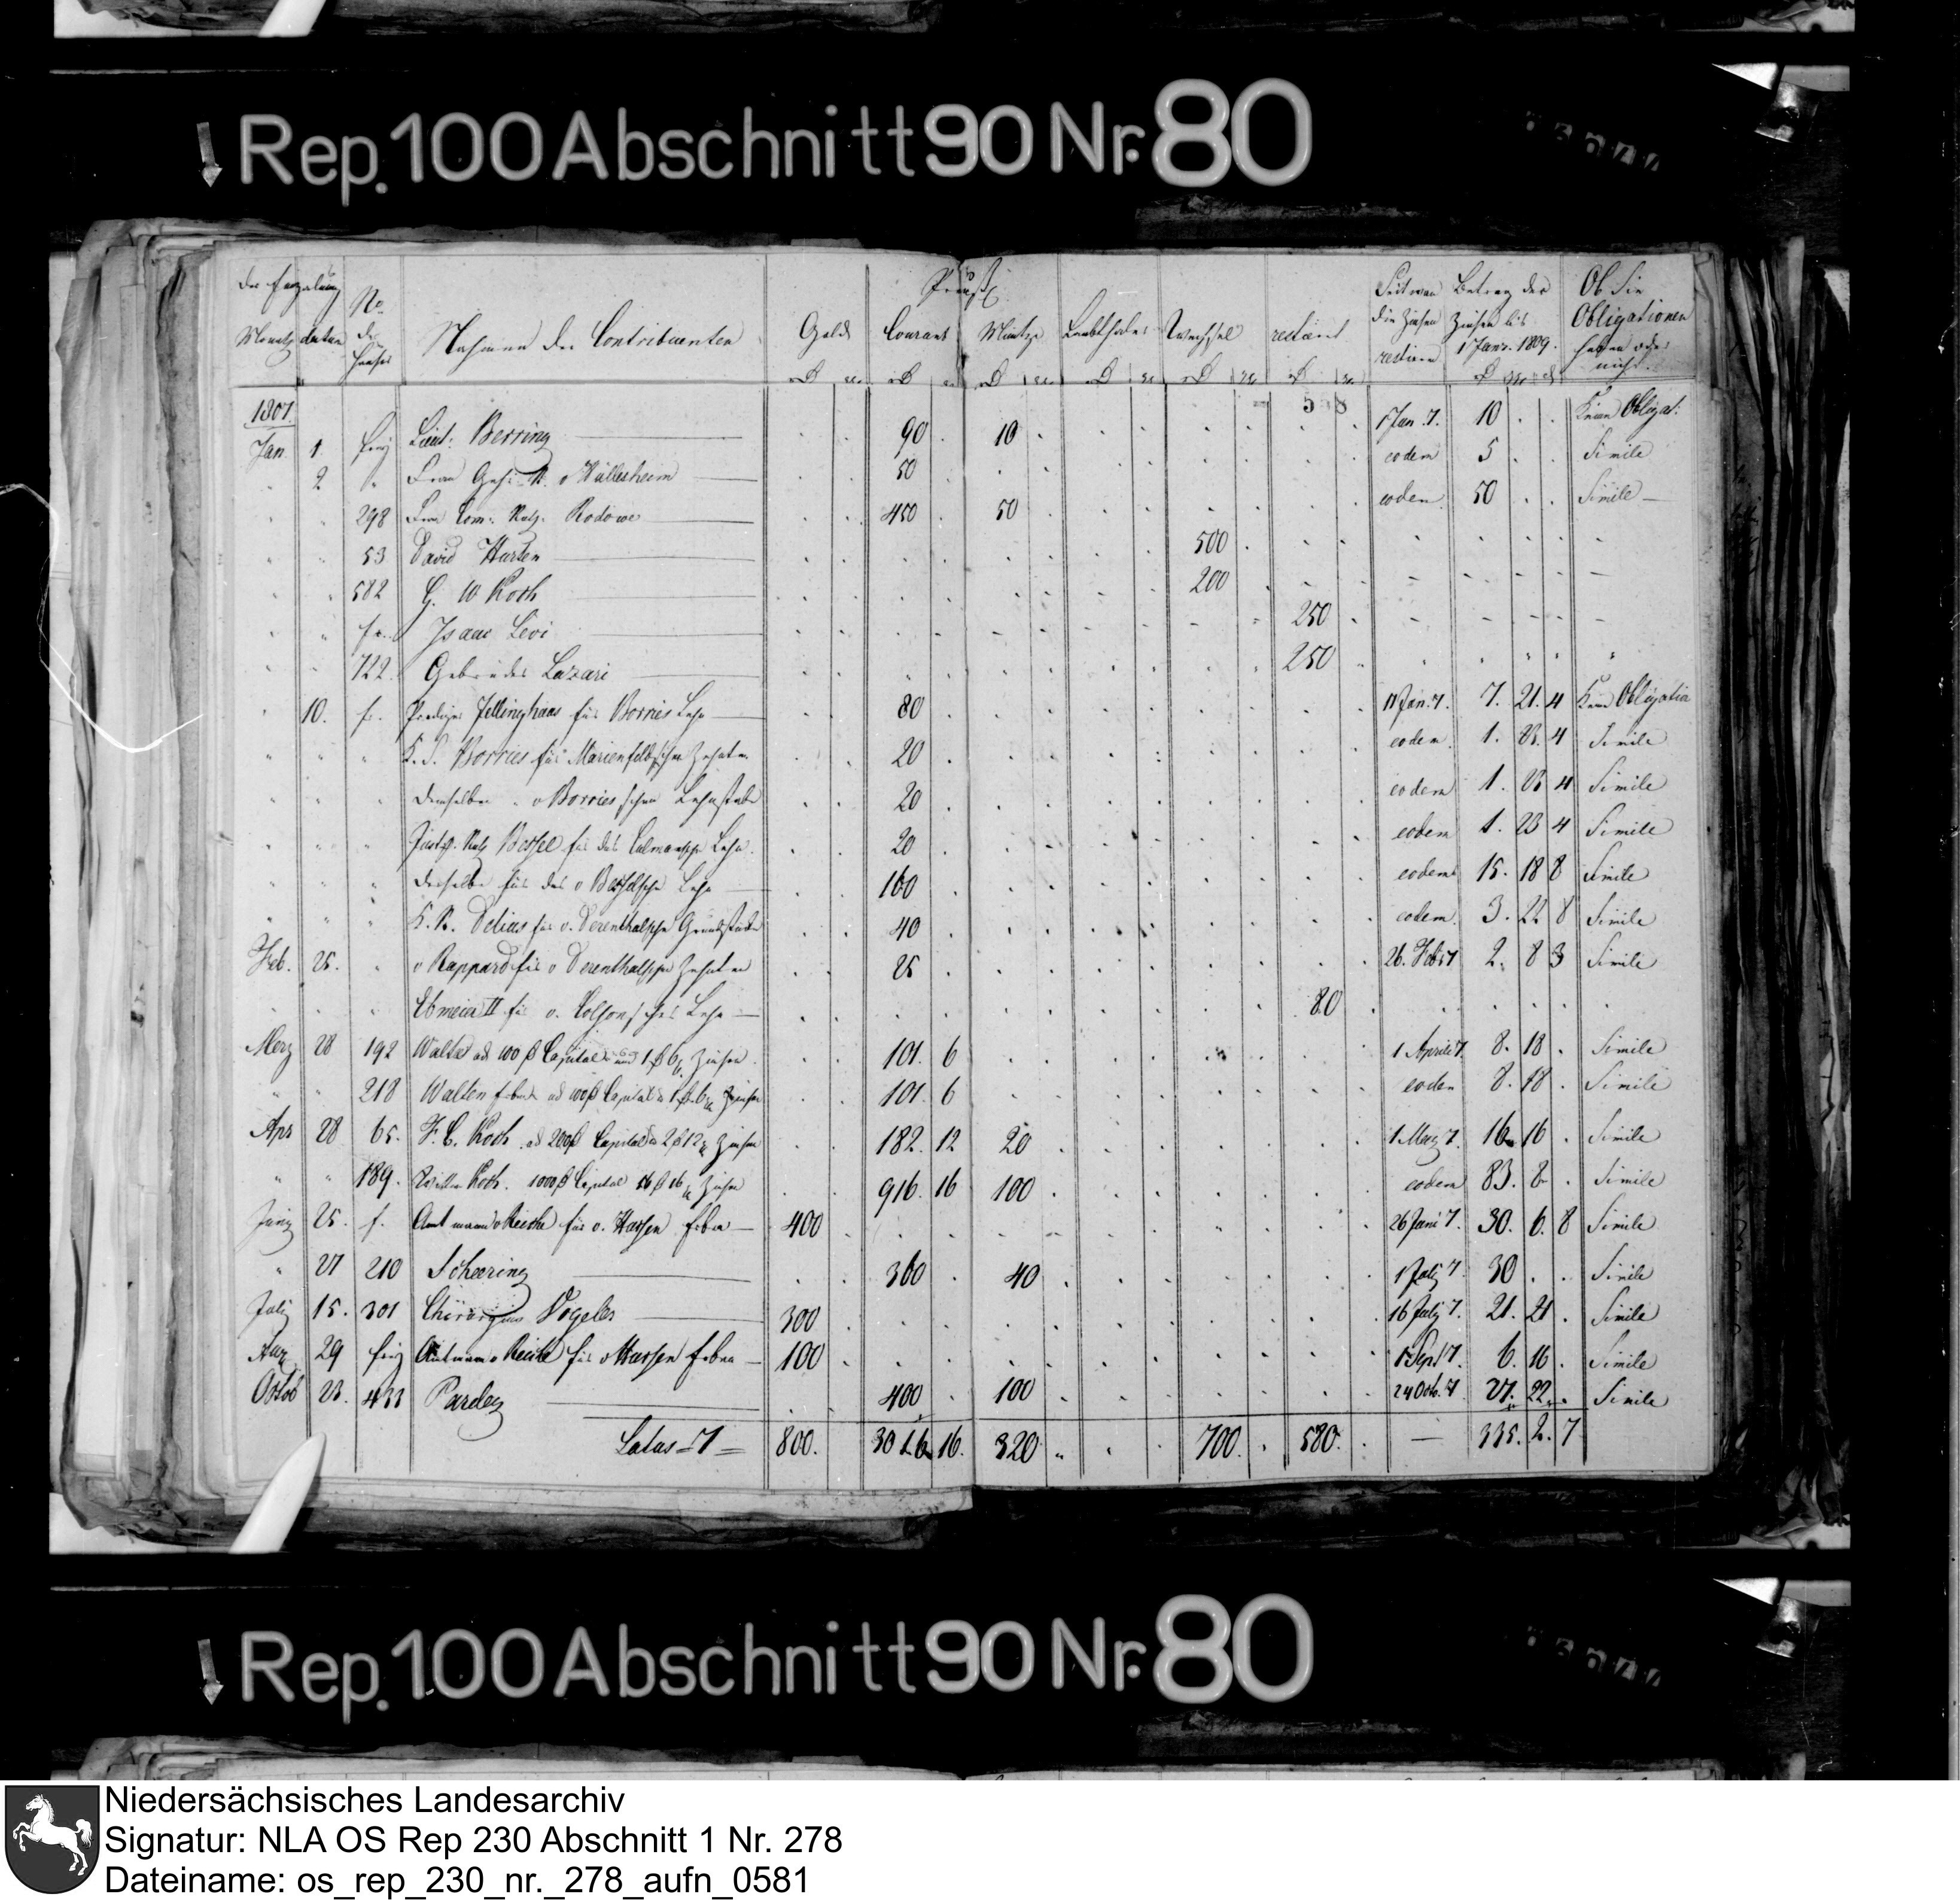 Rep. 100 Abschnitt 90 Nr. 80
Der Einzalung
Monath datum
No. der Hauses
Nahmen der Contribuenten
Gold
Preuß.
Courant
Müntze
Laubthaler
Wechsel
restiert
Seit wan die Zinsen restiren
Betrag der Zinsen bis 1 Janr. 1809.
Ob Sie Obligationen haben oder nicht.
58
1807.
Jan. 1. frey Lieut: Berring 90 10 1 Jan. 7. 10 Keine Obligat:
2 Frau Geh. R. v Hüllesheim 50 eodem 5 Simile
298 Frau Com: Rath. Rodowe 450 50 eodem 50 Simile
53 David Hurten 500
582 G. W Koch 200
fr. Isaac Levi 250
722. Gebrüder Lazari 250
10. fr. Prediger Jellinghaus für Borries Lehn 80 11 Jan. 7. 7. 21. 4 Keine Obligation
Borries für Marienfeldschen Zehnten 20 eodem 1. 23. 4 Simile
Demselben v Borriesschen 20 eodem 1. 23 4 Simile
Justiz. Rath Bessel für das Lehn 20 eodem 1. 23 4 Simile
derselbe für das v Besselsche Lehn 160 eodem 15. 18 8 Simile
K. R. Delius für v. Derenthalsche Grundstücke 40 eodem 3. 22 8 Simile
Feb. 25. v Rappard für v Derenthalschen Zehnten 25 26. Feb. 7 2. 8 3 Simile
Ebmeier II für v. Lehn 80
Merz 28 192 Walte ad 100 Capital und 1 6 Zinsen 101. 6 1 April 7. 8. 18 Simile
218 Walten Erben ad 100 Capital 1 6 Zinsen 101. 6 eodem 8. 18 Simile
Apr 28 65. F. C. Koch ad 200 Capital 2 12 Zinsen 182. 12 20 1 Merz 7. 16 16 Simile
189. Koch. 1000 Capital 16 16 Zinsen 916. 16 100 eodem 83. 8 Simile
Juny 25. f. Amtmann v Reiche für v. Hassen Erben 400 26 Juni 7. 30. 6. 8 Simile
27 210 Scheering 360 40 1 July 7 30 Simile
July 15. 301 Chirurgus Vogeler 300 16 July 7. 21. 21 Simile
Aug 29 frey Amtmann v Reiche für v Hassen Erben 100 1 Sept 7. 6. 16 Simile
Octob 23. 433 Pardey 400 100 24 Oct. 7 27. 22 Simile
Latus 7 800. 3016 16. 320 700. 580. 335. 2. 7
Rep. 100 Abschnitt 90 Nr. 80
Niedersächsisches Landesarchiv
Signatur: NLA OS Rep 230 Abschnitt 1 Nr. 278
Dateiname: os_rep_230_nr._278_aufn_0581